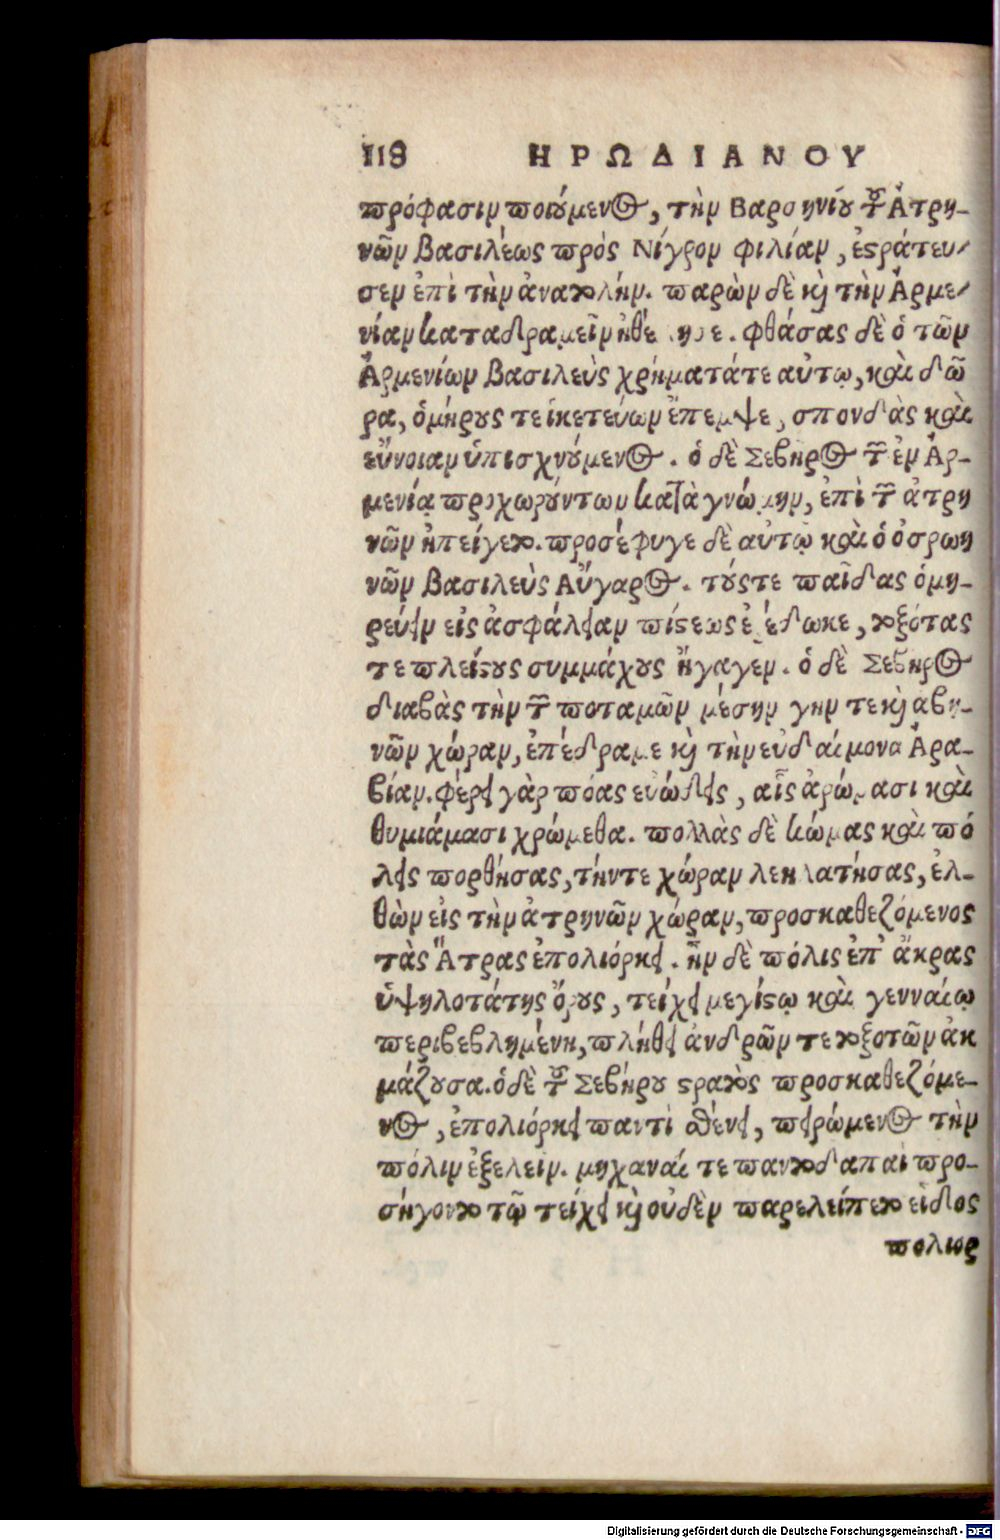 118 ΗΡΩΔΙΑΝΟΥ
πρόφασιν ποιούμενος, τὴν Βαρσηνίου τοῦ Ἀτρη-
νῶν βασιλέως πρὸς Νίγρον φιλίαν, ἐστράτευ-
σεν ἐπὶ τὴν ἀνατολήν. παρὼν δὲ καὶ τὴν Ἀρμε-
νίαν καταδραμεῖν ἠθέ ησε. φθάσας δὲ ὁ τῶν
Ἀρμενίων βασιλεὺς χρήματάτε αὐτῳ, καὶ δῶ
ρα, ὁμήρους τε ἱκετεύων ἔπεμψε, σπονδὰς καὶ
εὔνοιαν ὑπισχνούμενος. ὁ δὲ Σεβῆρος τῶν ἐν Ἀρ-
μενίᾳ προχωρούντων κατὰ γνώμην, ἐπὶ τῶν ἀτρη
νῶν ἠπείγετο. προσέφυγε δὲ αὐτῷ καὶ ὁ ὀσρωη
νῶν βασιλεὺς Αὔγαρος. τούστε παῖδας ὁμη-
ρεύειν εἰς ἀσφάλειαν πίστεως ἐπέδωκε, τοξότας
τε πλείστους συμμάχους ἤγαγεν. ὁ δὲ Σεβῆρος
διαβὰς τὴν τῶν ποταμῶν μέσην γην τε καὶ αβη-
νῶν χώραν, ἐπέδραμε καὶ τὴν εὐδαίμονα Ἀρα-
βίαν. φέρει γὰρ πόας εὐώδεις, αἷς ἀρώμασι καὶ
θυμιάμασι χρώμεθα. πολλὰς δὲ κώμας καὶ πό
λεις πορθήσας, τήντε χώραν λεηλατήσας, ἐλ-
θὼν εἰς τὴν ἀτρηνῶν χώραν, προσκαθεζόμενος
τὰς Ἄτρας ἐπολιόρκει. ἦν δὲ πόλις ἐπ' ἄκρας
ὑψηλοτάτης ὄρους, τείχει μεγίστῳ καὶ γενναίῳ
περιβεβλημένη, πλήθει ἀνδρῶν τε τοξοτῶν ἀκ
μάζουσα. ὁδὲ τοῦ Σεβήρου στρατὸς προσκαθεζόμε-
νος, ἐπολιόρκει παντὶ σθένει, πειρώμενος τὴν
πόλιν ἐξελειν. μηχαναί τε παντοδαπαὶ προ-
σήγοντο τῷ τείχει καὶ οὐδὲν παρελείπετο εἶδος
πολιορ
Digitalisierung gefördert durch die Deutsche Forschungsgemeinschaft - DFG